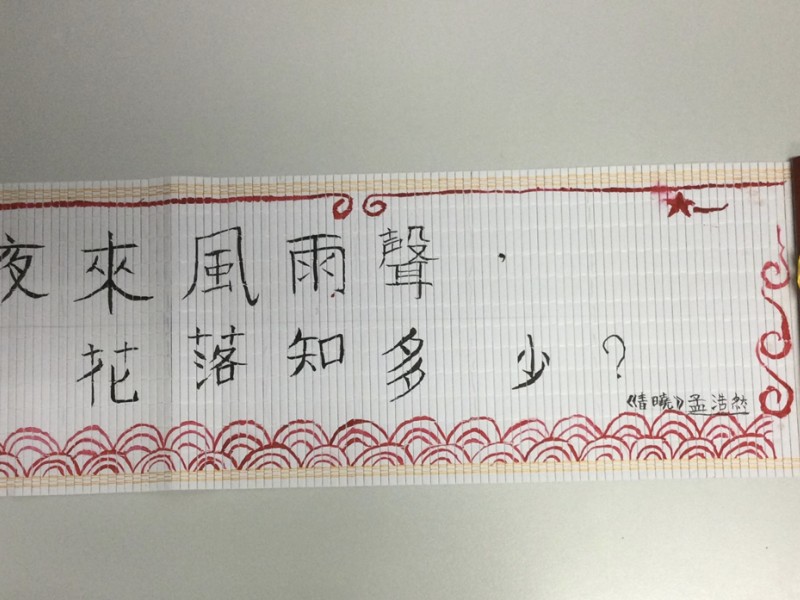 夜來風雨聲，
花落知多少？
《情曉》孟浩然